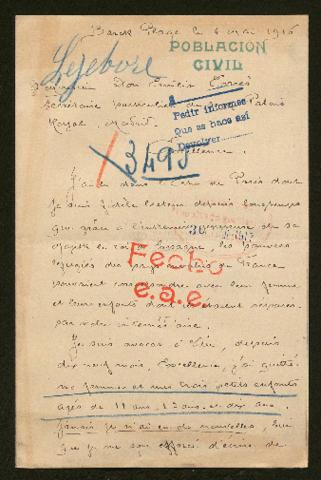 Berck Plage le 6 mai 1916
POBLACION
CIVIL
Lefebvre
Monsieur Don Emilio Torres
Secrétaire particulier Palais
Royal, Madrid
Pedir informes
Que se hace así
Devolver
3495
Excellence,
J'ai lu dans l'Echo de Paris dont
je suis fidèle lecteur depuis longtemps
que grâce à l'intermédiaire de sa
Majesté le roi d'Espagne, les pauvres
réfugiés des pays envahis de France
pouvaient correspondre avec leur femme
et leurs enfants dont ils étaient séparés
par votre intermédiaire.
Fecho
e.a.e.
Je suis avocat à Lille, depuis
dix neuf mois, Excellence, j'ai quitté
ma femme et mes trois petits enfants
âgés de 11 ans, 12 ans et dix ans.
Jamais je n'ai eu de nouvelles, bien
que je me sois efforcé d'écrire de